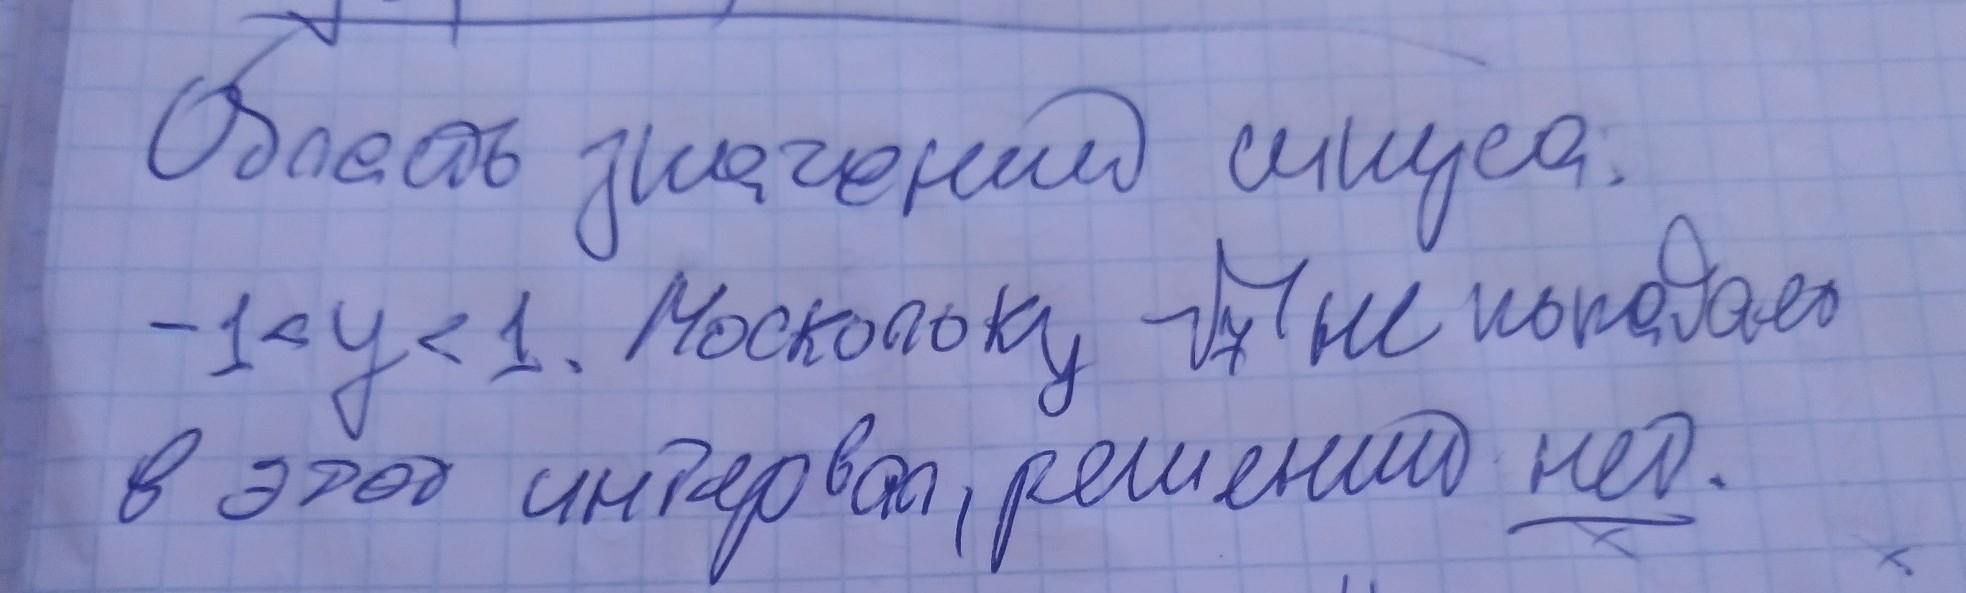 Область значений синуса:
-1<y<1. Поскольку -√7 не попадает
в этот интервал, решений нет.